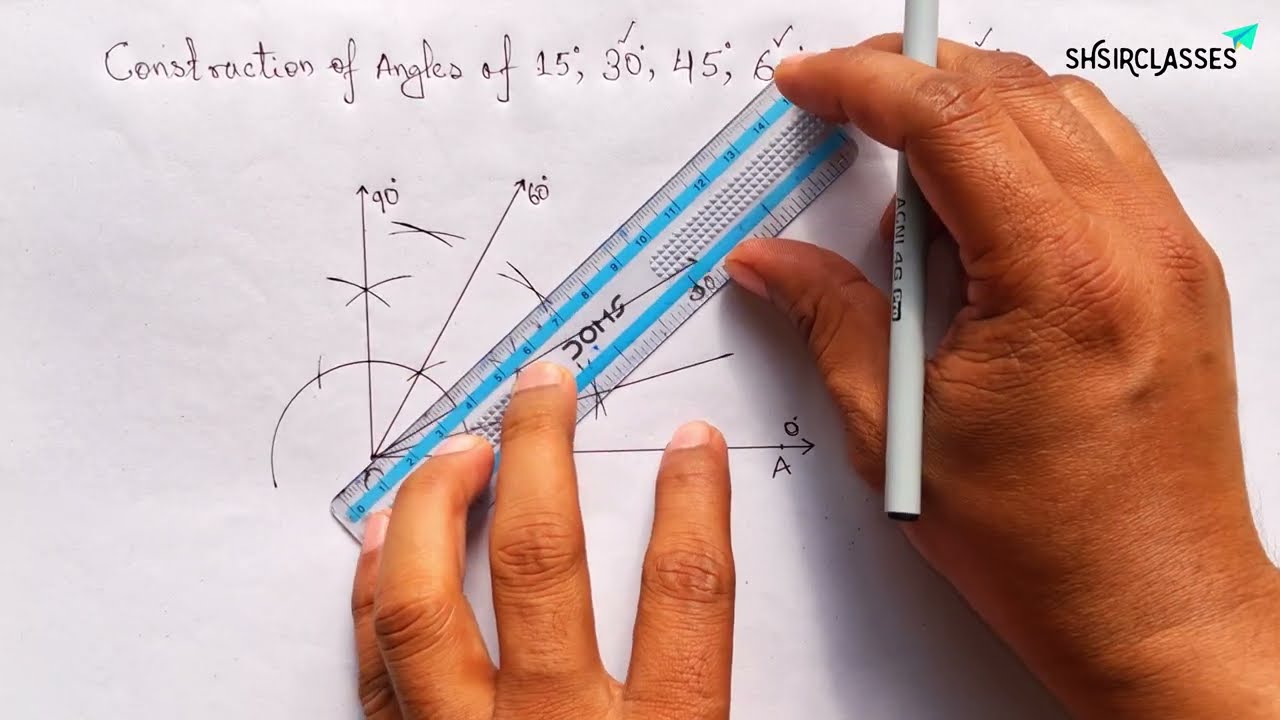 SHSIRCLASSES
Construction of Angles of 15°, 30°, 45°, 6
90°
60°
14
13
12
11
10
9
8
7
6
5
4
3
2
1
0
30
0°
A
ACNI 4G Cm